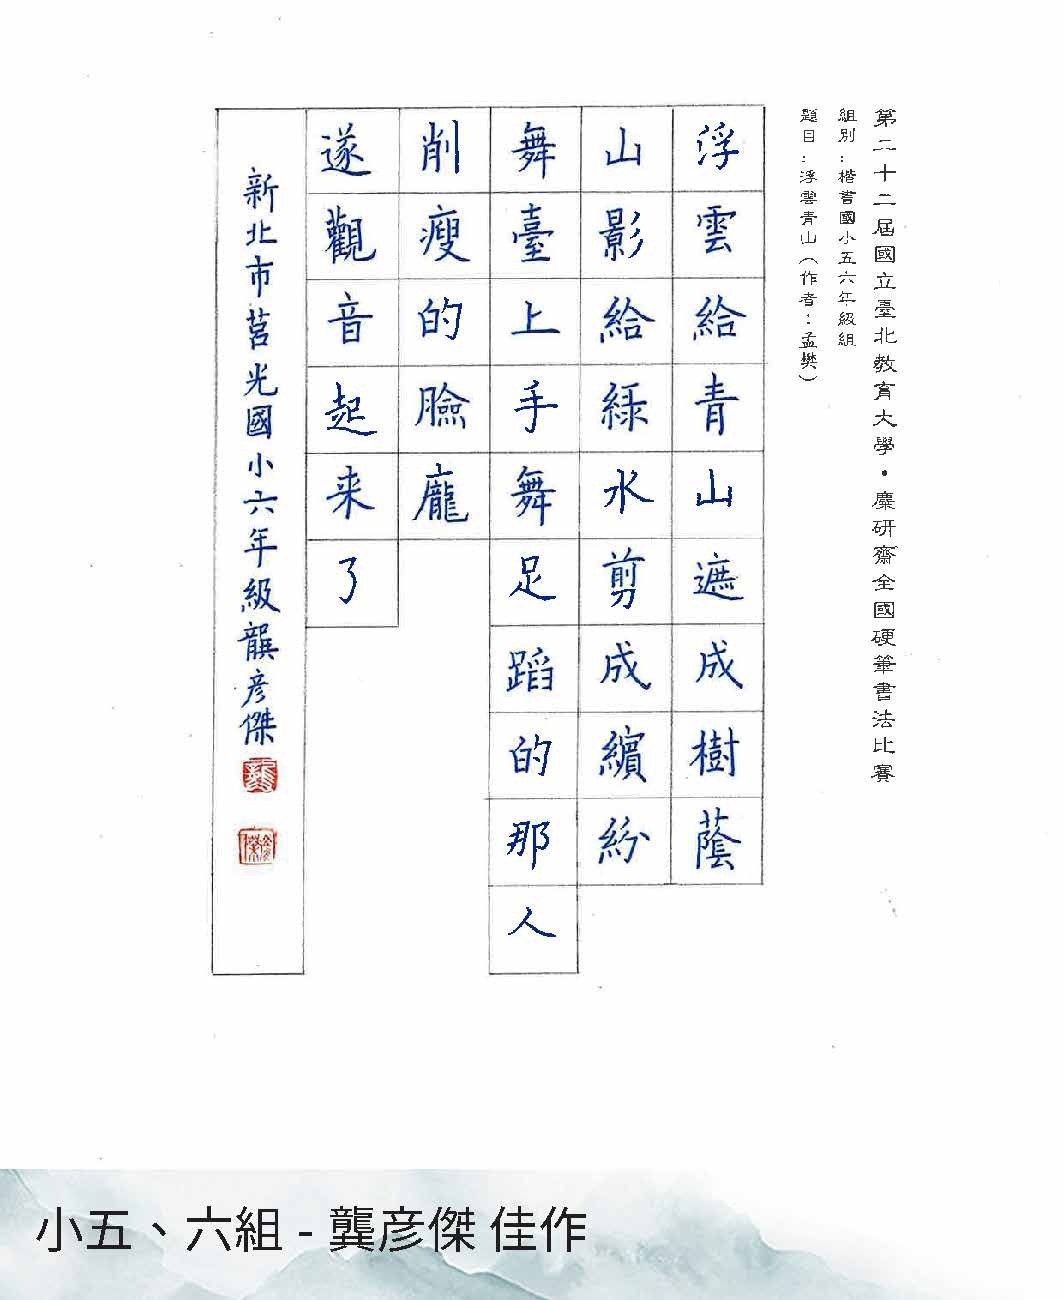 第二十二屆國立臺北教育大學・麋研齋全國硬筆書法比賽
組別：楷書國小五六年級組
題目：浮雲青山（作者：孟樊）
浮雲給青山遮成樹蔭
山影給綠水剪成繽紛
舞臺上手舞足蹈的那人
削瘦的臉龐
遂觀音起來了
新北市莒光國小六年級龔彦傑
小五、六組 - 龔彦傑 佳作